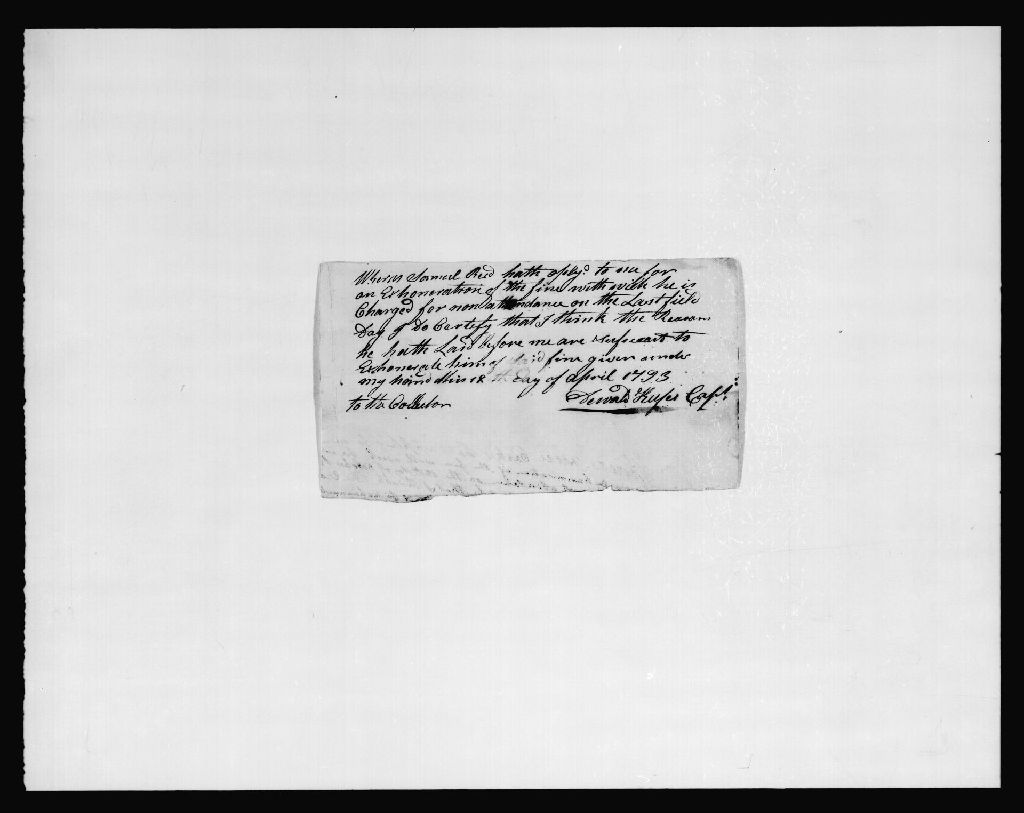 Wheras Samuel Reed hath aply.d to me for
an Exhoneration of the fine with wich he is
Charged for non attendance on the Last field
Day I Do Certify that I think the Reasons
he hath Laid before me are Suficeant to
Exhonerate him of said fine given under
my hand this 18 th day of April 1793
to the Collector
Dewald Capt.